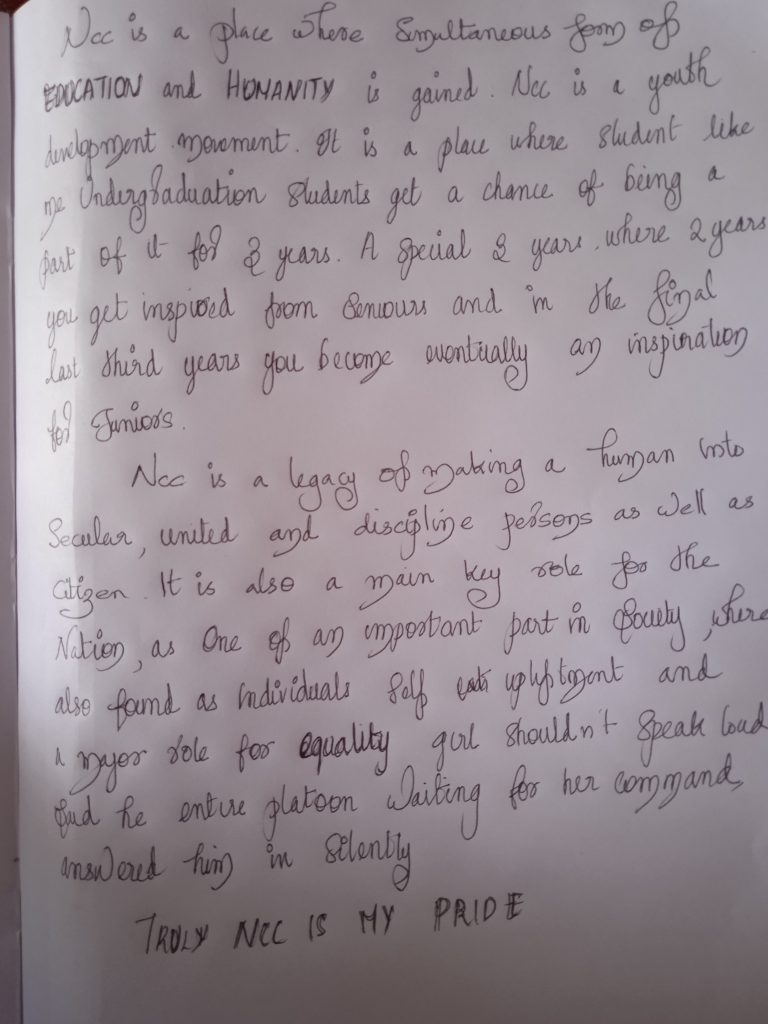 Ncc is a place where Simultaneous form of
EDUCATION and HUMANITY is gained. Ncc is a youth
development movement. It is a place where student like
me Undergraduation students get a chance of being a
part of it for 3 years. A special 3 years, where 2 years
you get inspired from Seniours and in the final
last third years you become eventually an inspiration
for Juniors.
Ncc is a legacy of making a human into
Secular, united and discipline persons as well as
Citizen. It is also a main key role for the
Nation, as One of an important part in Society, where
also found as individuals self upliftment and
a major role for equality girl shouldn't speak loud
Said he entire platoon Waiting for her command,
answered him in Silently
TRULY NCC IS MY PRIDE